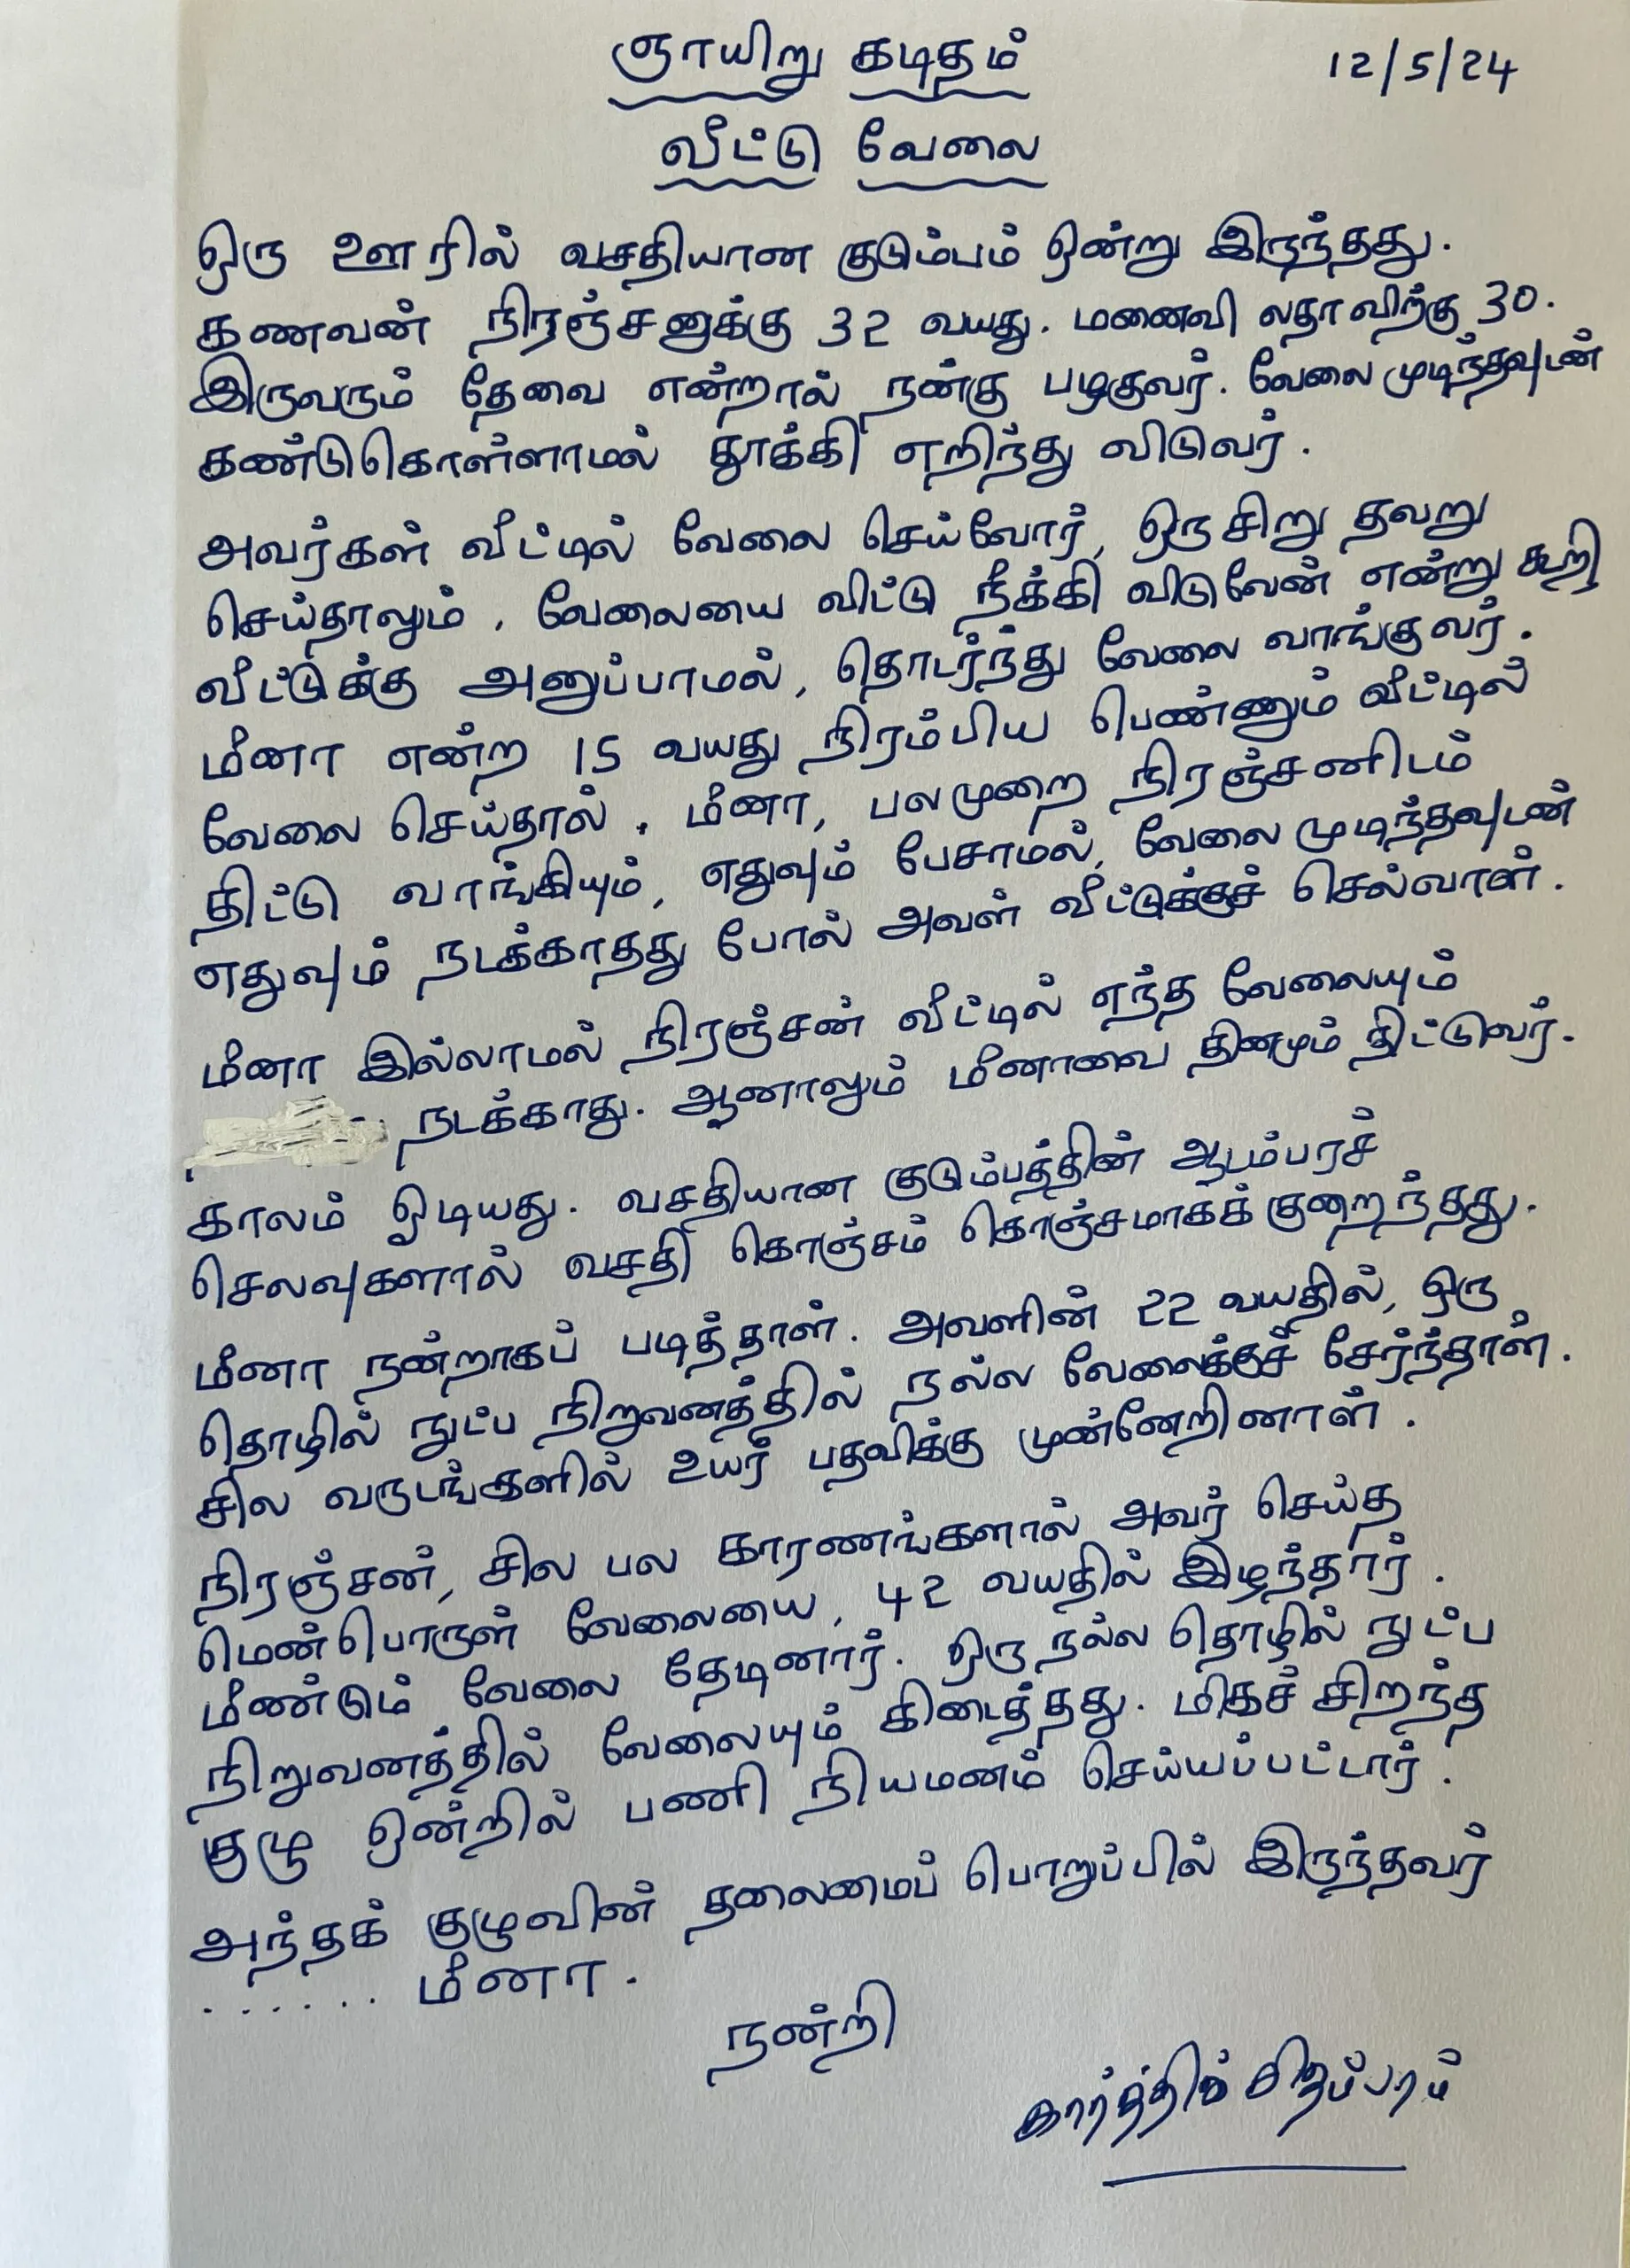 ஞாயிறு கடிதம்
12/5/24
வீட்டு வேலை
ஒரு ஊரில் வசதியான குடும்பம் ஒன்று இருந்தது.
கணவன் நிரஞ்சனுக்கு 32 வயது. மனைவி லதாவிற்கு 30.
இருவரும் தேவை என்றால் நன்கு பழகுவர். வேலை முடிந்தவுடன்
கண்டுகொள்ளாமல் தூக்கி எறிந்து விடுவர்.
அவர்கள் வீட்டில் வேலை செய்வோர், ஒரு சிறு தவறு
செய்தாலும், வேலையை விட்டு நீக்கி விடுவேன் என்று கூறி
வீட்டுக்கு அனுப்பாமல், தொடர்ந்து வேலை வாங்குவர்.
மீனா என்ற 15 வயது நிரம்பிய பெண்ணும் வீட்டில்
வேலை செய்தால். மீனா, பலமுறை நிரஞ்சனிடம்
திட்டு வாங்கியும், எதுவும் பேசாமல், வேலை முடிந்தவுடன்
எதுவும் நடக்காதது போல் அவள் வீட்டுக்குச் செல்வாள்.
மீனா இல்லாமல் நிரஞ்சன் வீட்டில் எந்த வேலையும்
நடக்காது. ஆனாலும் மீனாவை தினமும் திட்டுவர்.
காலம் ஓடியது. வசதியான குடும்பத்தின் ஆடம்பரச்
செலவுகளால் வசதி கொஞ்சம் கொஞ்சமாகக் குறைந்தது.
மீனா நன்றாகப் படித்தாள். அவளின் 22 வயதில், ஒரு
தொழில் நுட்ப நிறுவனத்தில் நல்ல வேலைக்குச் சேர்ந்தாள்.
சில வருடங்களில் உயர் பதவிக்கு முன்னேறினாள்.
நிரஞ்சன், சில பல காரணங்களால் அவர் செய்த
மென்பொருள் வேலையை, 42 வயதில் இழந்தார்.
மீண்டும் வேலை தேடினார். ஒரு நல்ல தொழில் நுட்ப
நிறுவனத்தில் வேலையும் கிடைத்தது. மிகச் சிறந்த
குழு ஒன்றில் பணி நியமனம் செய்யப்பட்டார்.
அந்தக் குழுவின் தலைமைப் பொறுப்பில் இருந்தவர்
...... மீனா.
நன்றி
கார்த்திக் சிதம்பரம்